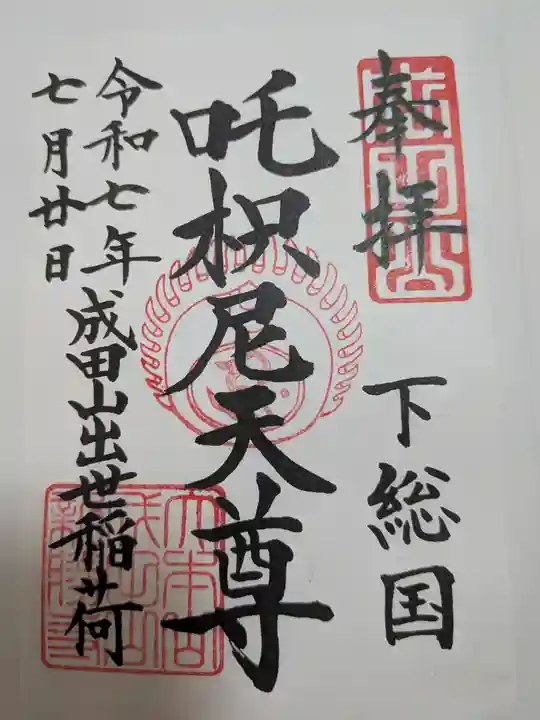 奉拝
下総国
吒枳尼天尊
令和七年
七月廿日
成田山出世稲荷